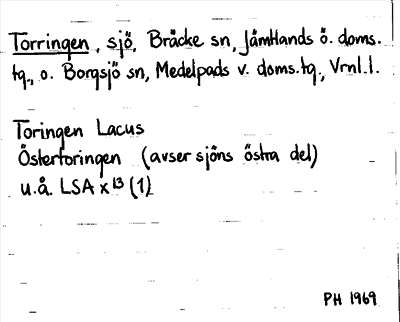 Torringen, sjö, Bräcke sn, Jämtlands ö. doms.
tg., o. Borgsjö sn, Medelpads v. doms.tg., Vrnl.l.
Toringen Lacus
Östertoringen (avser sjöns östra del)
u.å. LSA x 13 (1)
PH 1969